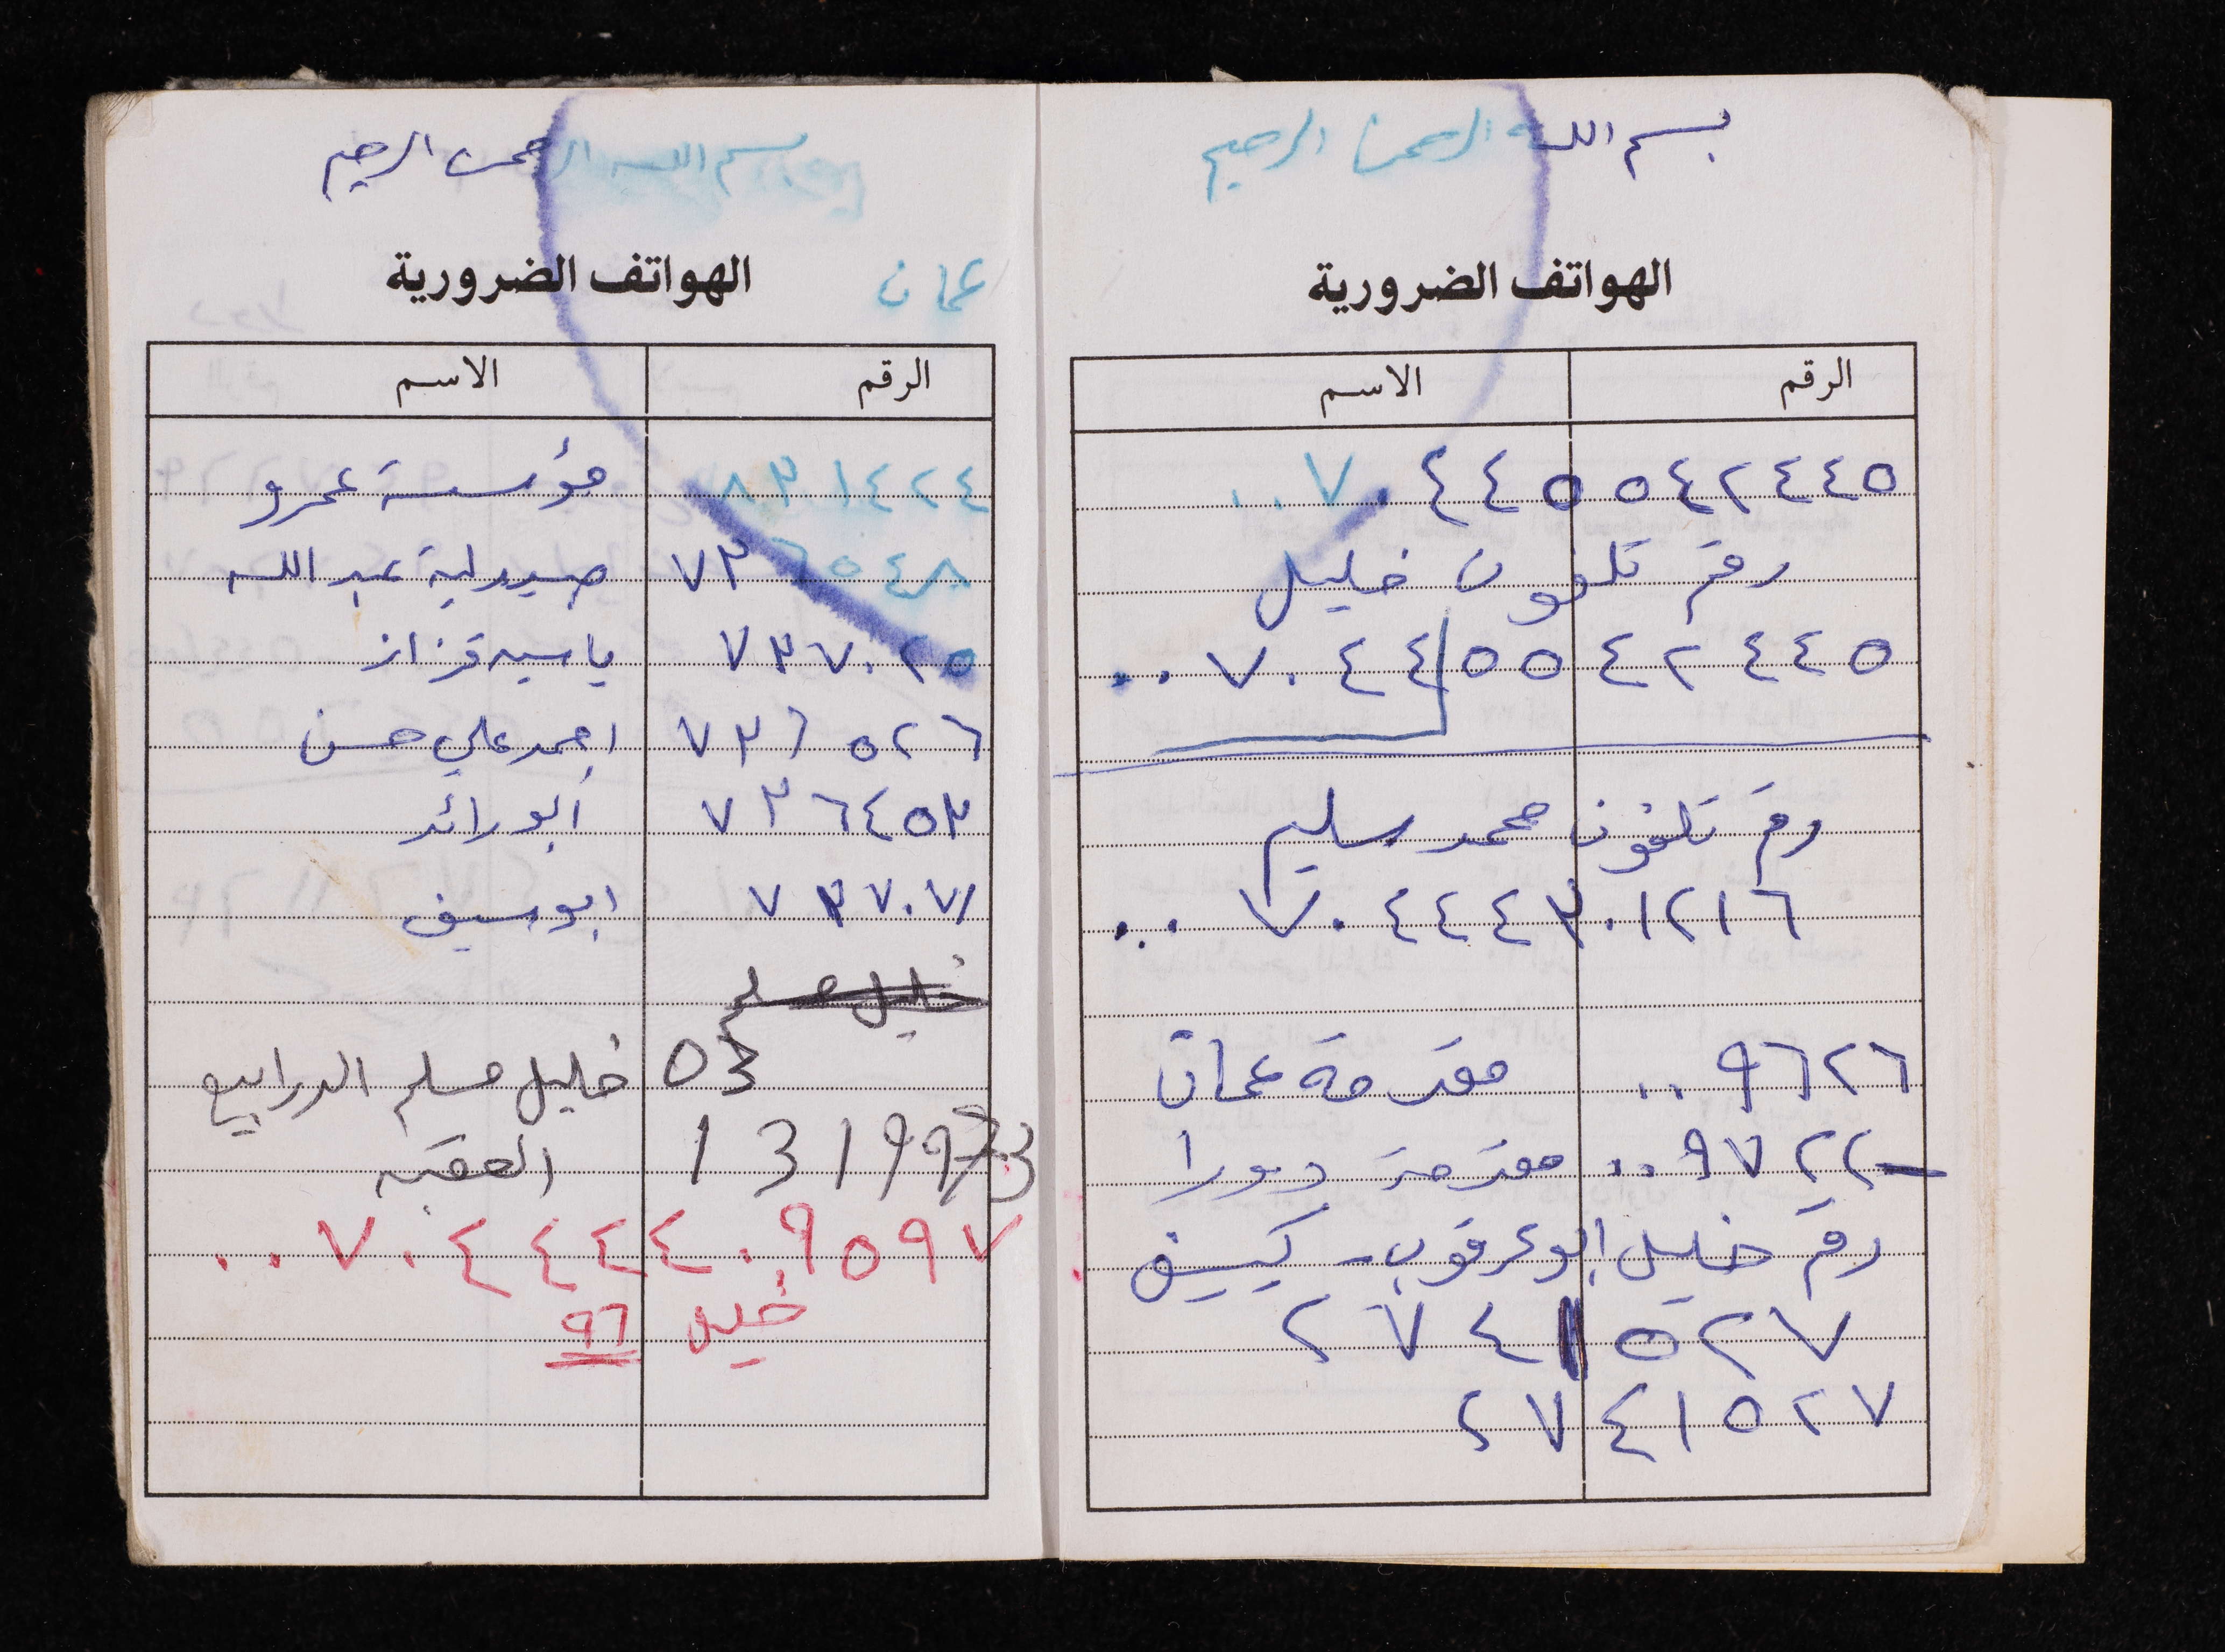 بسم الله الرحمن الرحيم
الهواتف الضرورية
الرقم الاسم
٠٠٧٠٤٤٥٥٤٢٤٤٥
رقم تلفون خليل
٠٠٧٠٤٤٥٥٤٢٤٤٥
رقم تلفون محمد سليم
٠٠٧٠٤٤٤٣٠١٢١٦
٠٠٩٦٢٦ مقدمة عمان
٠٠٩٧٢٢ مقدمة دورا
رقم خليل ابو عرقوب - كييف
٢٧٤١٥٢٧
٢٧٤١٥٢٧
بسم الله الرحمن الرحيم
عمان
الهواتف الضرورية
الرقم الاسم
٨٣١٤٢٤ مؤسسة عمرو
٧٣٦٥٤٨ صيدلية عبد الله
٧٣٧٠٢٥ ياسين قزاز
٧٣٦٥٢٦ احمد علي حسن
٧٣٦٤٥٣ ابو رائد
٧٣٧٠٧١ ابو سيف
خليل مسلم
03 خليل مسلم الدرابيع
العقبه
٠٠٧٠٤٤٤٤٠٩٥٩٧
خليل ٩٦